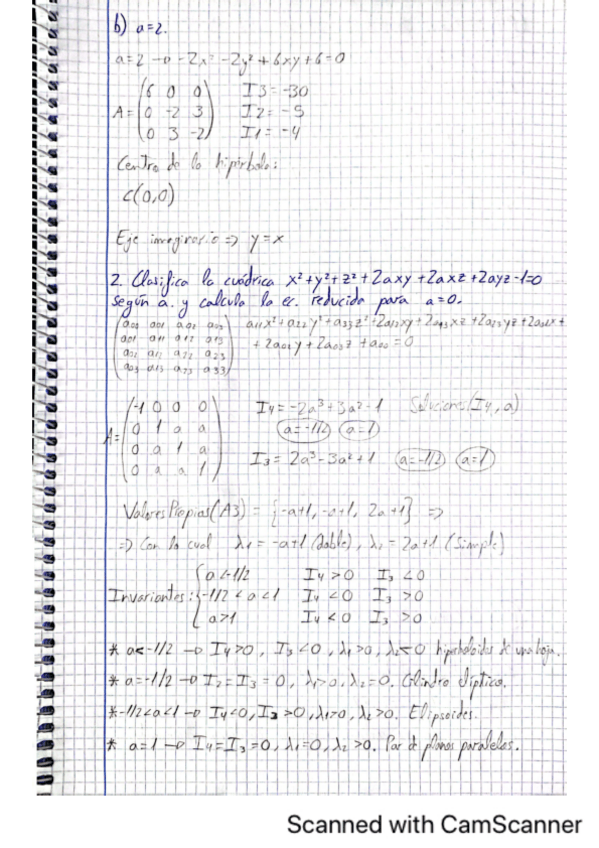 b) a=2.
a=2 → -2x² -2y² + 6xy + 6 = 0
A = (6 0 0 I3 = -30
0 -2 3 I2 = -5
0 3 -2) I1 = -4
Centro de la hipérbola:
C(0,0)
Eje imaginario => y=x
2. Clasifica la cuádrica x²+y²+z²+2axy+2axz+2ayz-1=0
según a. y calcula la ec. reducida para a=0.
(a00 a01 a02 a03 a11x²+a22y²+a33z²+2a12xy+2a13xz+2a23yz+2a01x+
a01 a11 a12 a13 + 2a02y+2a03z+a00=0
a02 a12 a22 a23
a03 a13 a23 a33)
A = (-1 0 0 0 I4 = -2a³+3a²-1 Soluciones(I4, a)
0 1 a a a=-1/2 a=1
0 a 1 a I3 = 2a³-3a²+1 a=-1/2 a=1
0 a a 1)
Valores Propios(A3) = {-a+1, -a+1, 2a+1} =>
=> Con lo cual λ1 = -a+1 (doble), λ2 = 2a+1 (simple)
a<-1/2 I4>0 I3<0
Invariantes: { -1/2<a<1 I4<0 I3>0
a>1 I4<0 I3>0
* a<-1/2 → I4>0, I3<0, λ1>0, λ2<0 hiperboloides de una hoja.
* a=-1/2 → I4=I3=0, λ1>0, λ2=0. Cilindro elíptico.
* -1/2<a<1 → I4<0, I3>0, λ1>0, λ2>0. Elipsoides.
* a=1 → I4=I3=0, λ1=0, λ2>0. Par de planos paralelos.
Scanned with CamScanner